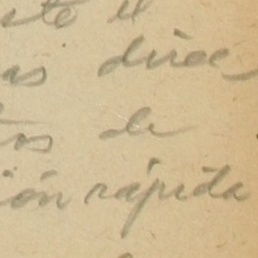 ste el
as direc
os de
ión rápida